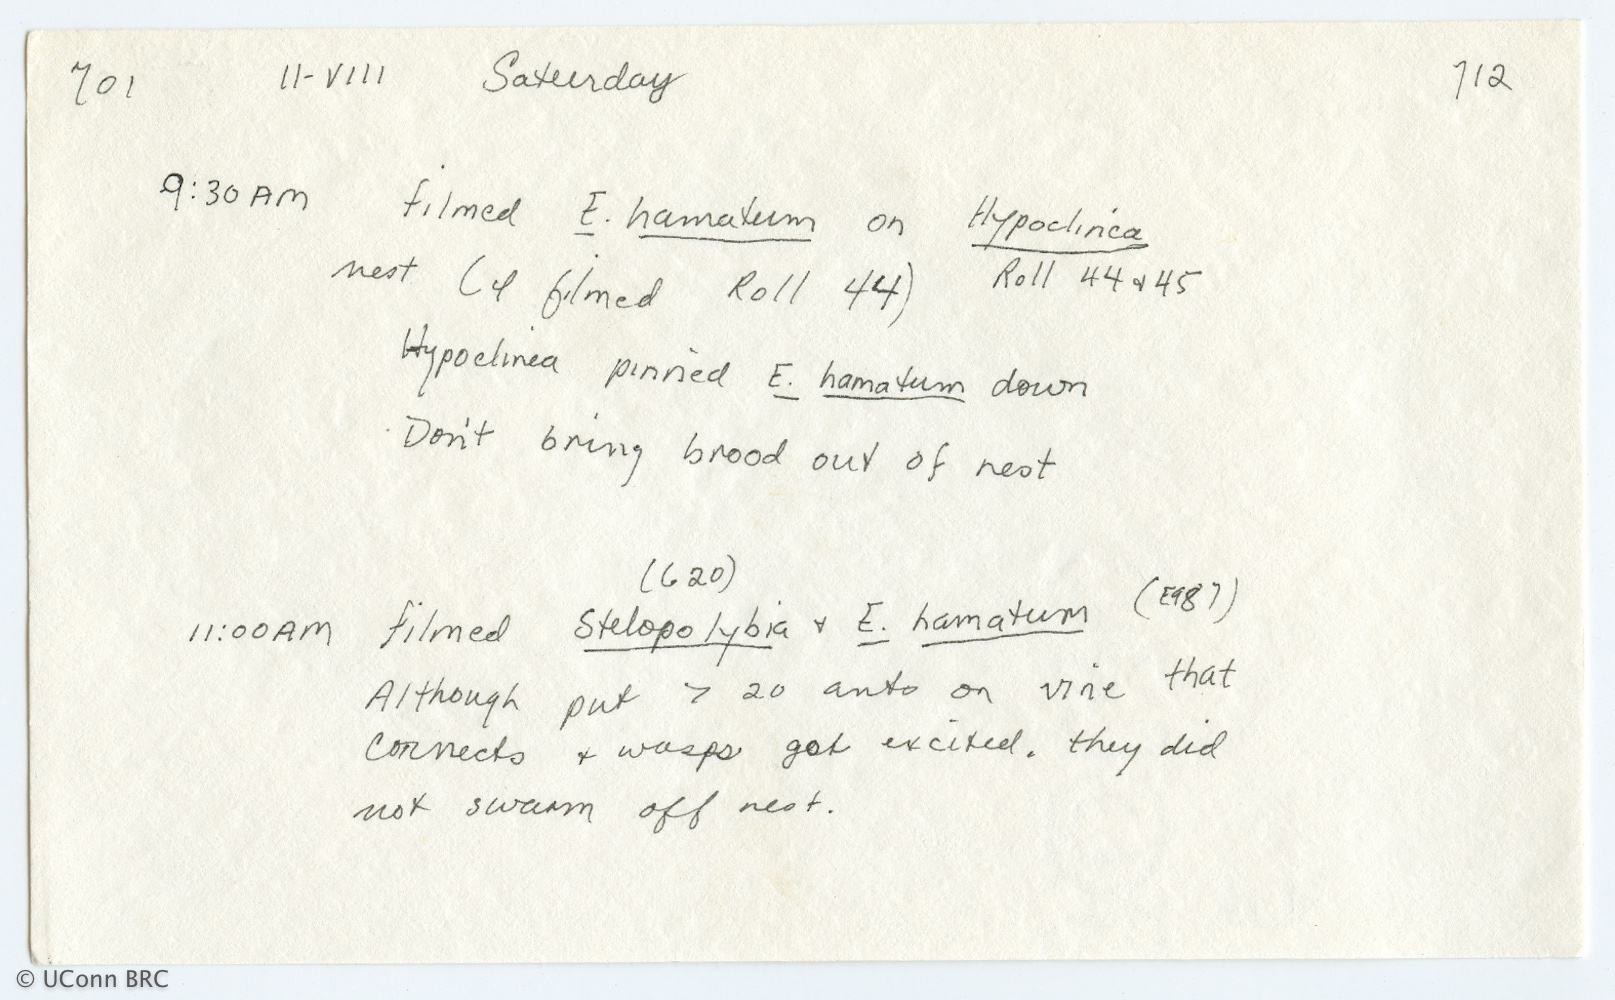 701 11-VIII Saturday 712
9:30 AM filmed E. hamatum on Hypoclinea
nest (I filmed Roll 44) Roll 44 & 45
Hypoclinea pinned E. hamatum down
Don't bring brood out of nest
(620)
11:00 AM filmed Stelopolybia & E. hamatum (E987)
Although put > 20 ants on vine that
connects & wasps got excited. they did
not swarm off nest.
© UConn BRC